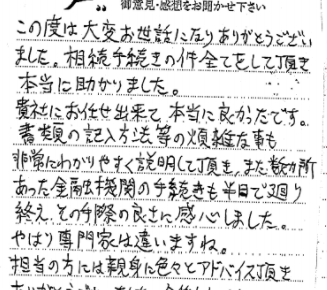 御意見・感想をお聞かせ下さい
この度は大変お世話になりありがとうござい
ました。相続手続きの件全てをして頂き
本当に助かりました。
貴社にお任せ出来て、本当に良かったです。
書類の記入方法等の煩雑な事も
非常にわかりやすく説明して頂き、また数ヵ所
あった金融機関の手続きも半日で廻り
終え、その手際の良さに感心しました。
やはり専門家は違いますね。
担当の方には親身に色々とアドバイス頂き